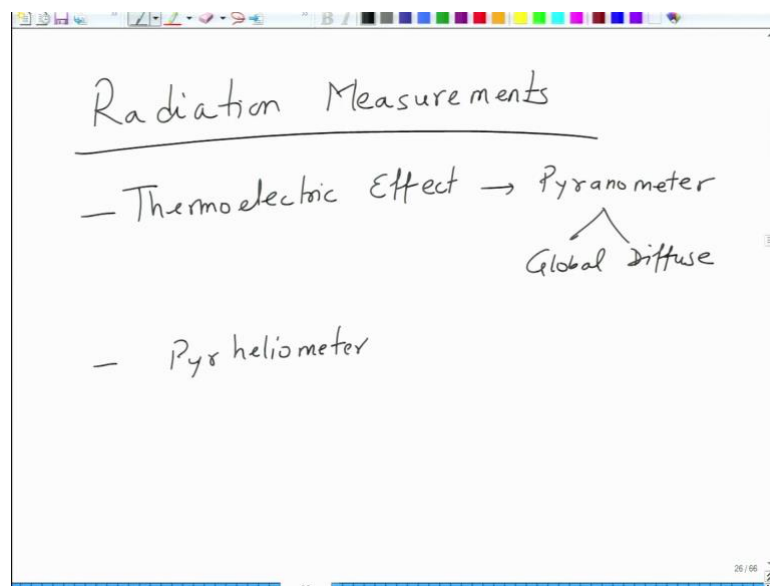 B I
Radiation Measurements
— Thermoelectric Effect → Pyranometer
Global Diffuse
— Pyrheliometer
26 / 66